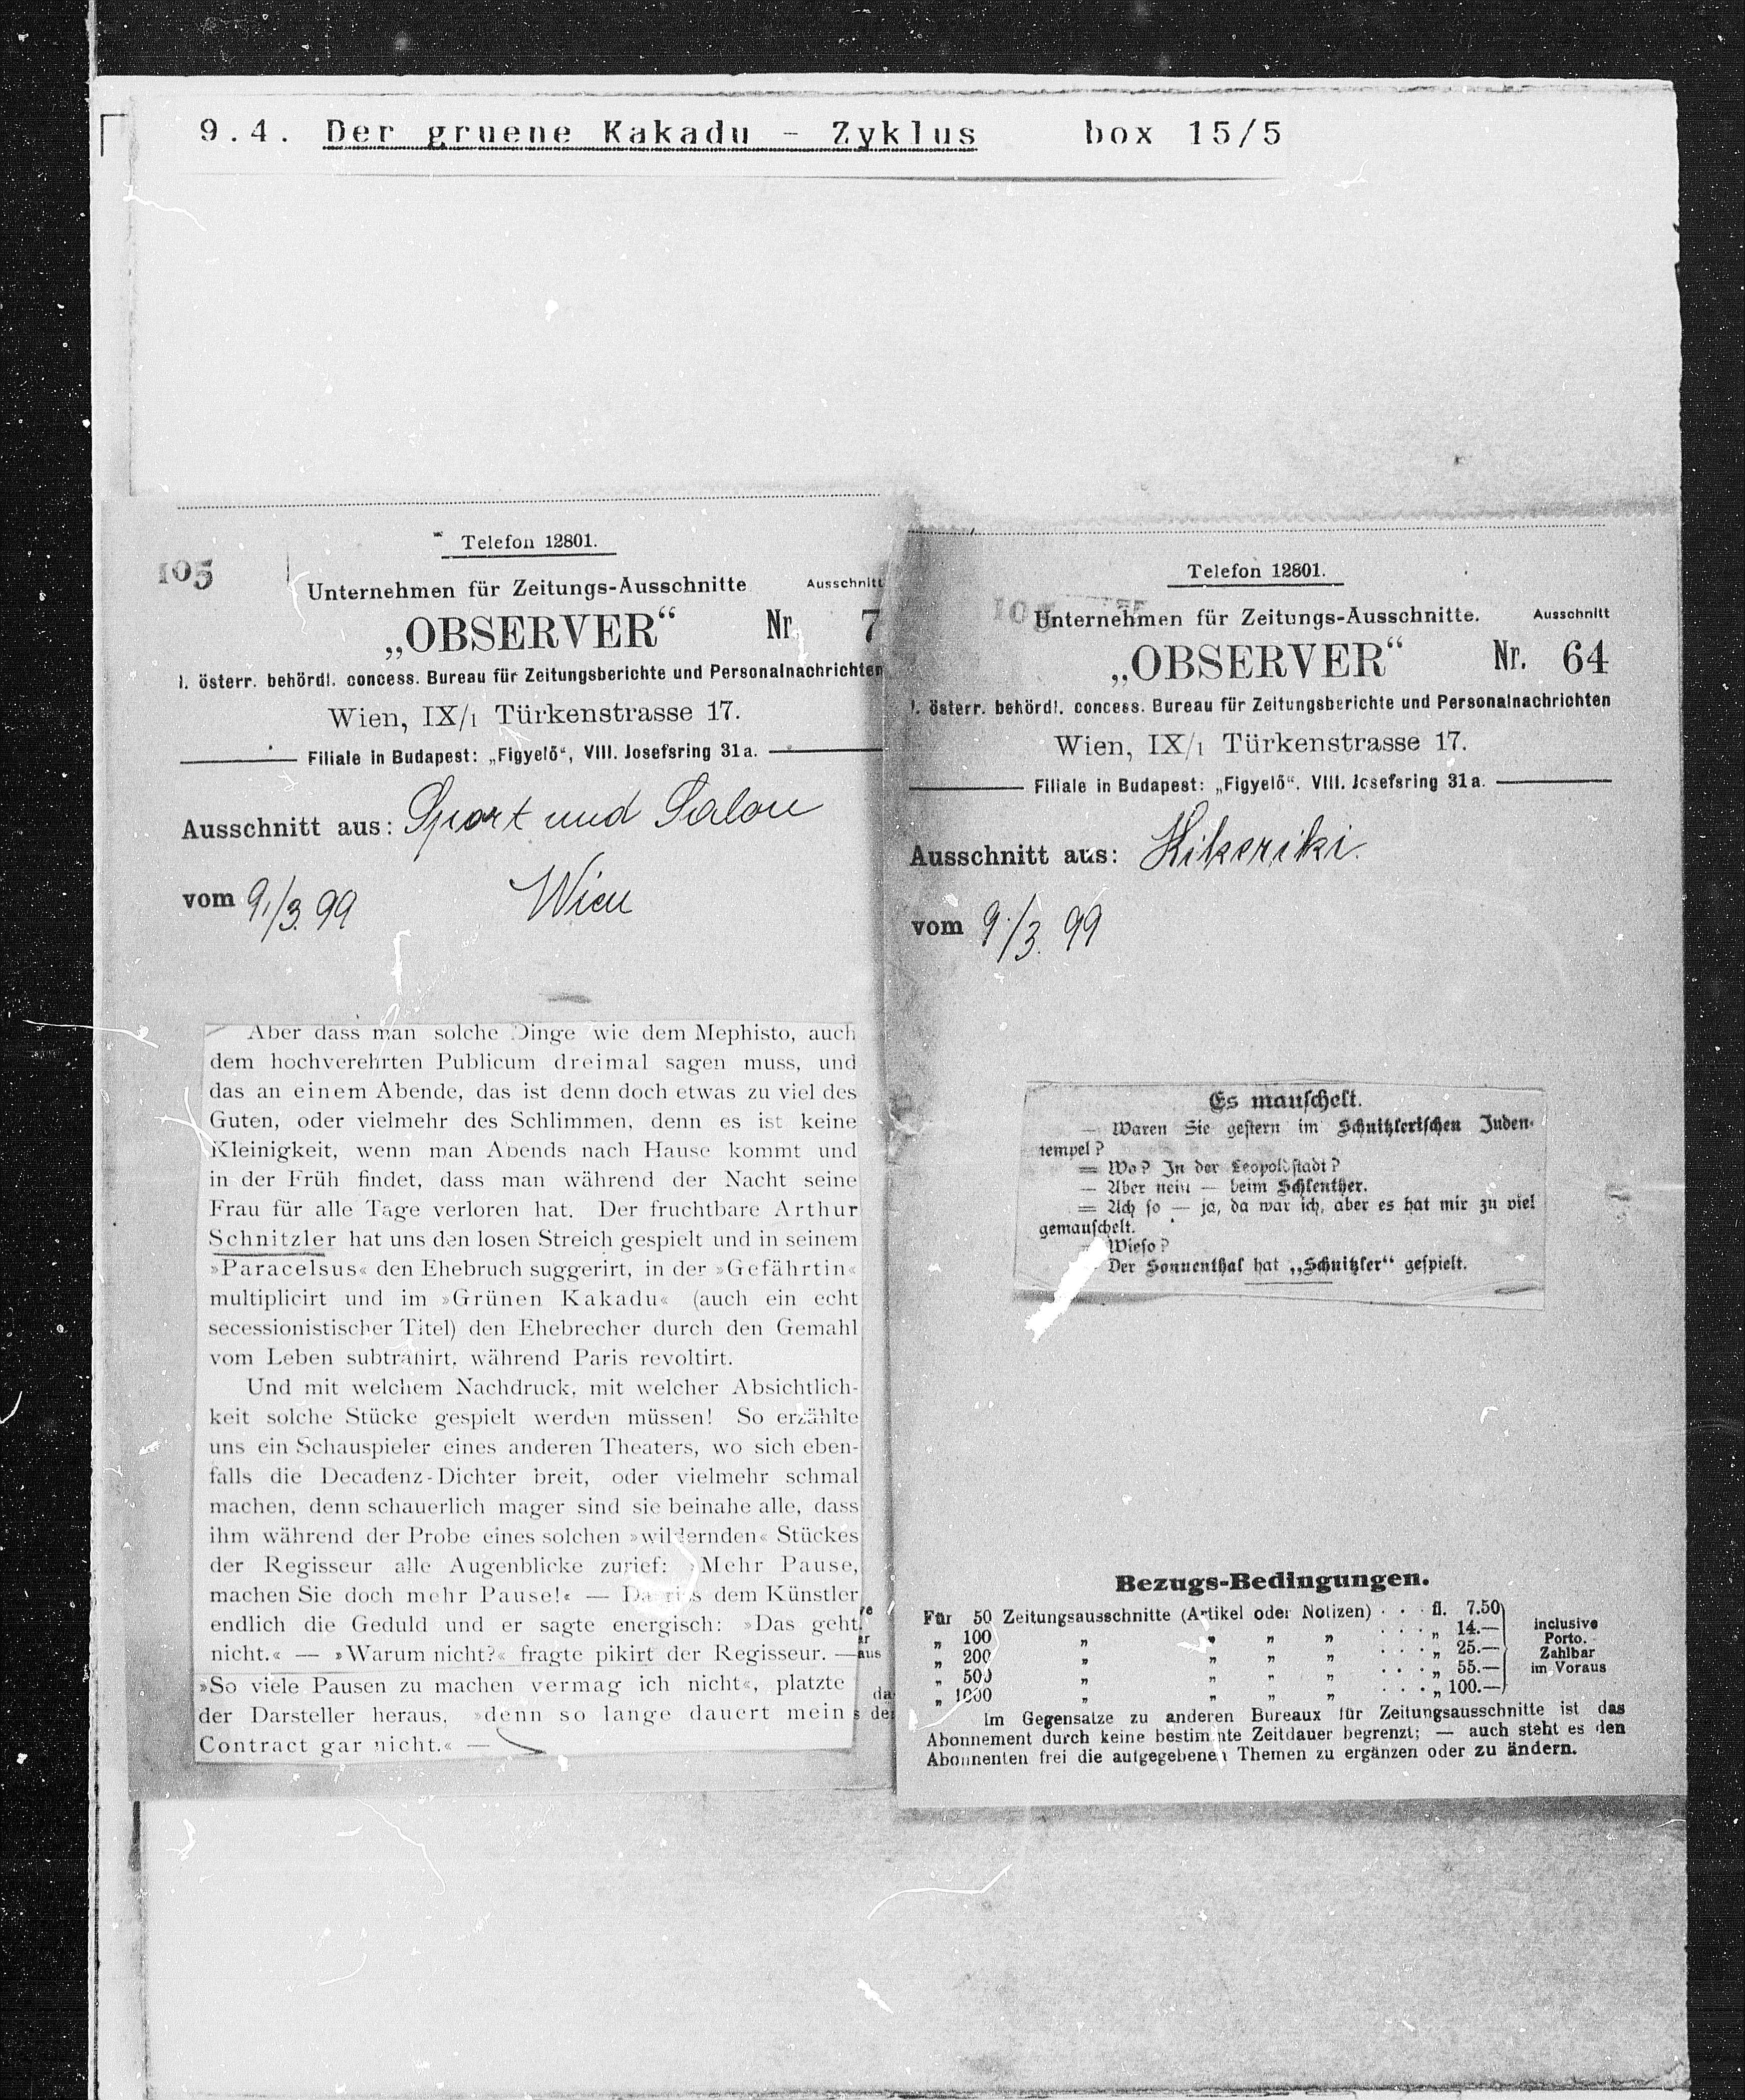 9.4. Der gruene Kakadu - Zyklus box 15/5
Telefon 12801.
105
Unternehmen für Zeitungs-Ausschnitte Ausschnitt
„OBSERVER“ Nr. 7
I. österr. behördl. concess. Bureau für Zeitungsberichte und Personalnachrichten
Wien, IX/1 Türkenstrasse 17.
Filiale in Budapest: „Figyelő“, VIII. Josefsring 31a.
Ausschnitt aus: Sport und Salon
vom 9./3. 99 Wien
Aber dass man solche Dinge wie dem Mephisto, auch
dem hochverehrten Publicum dreimal sagen muss, und
das an einem Abende, das ist denn doch etwas zu viel des
Guten, oder vielmehr des Schlimmen, denn es ist keine
Kleinigkeit, wenn man Abends nach Hause kommt und
in der Früh findet, dass man während der Nacht seine
Frau für alle Tage verloren hat. Der fruchtbare Arthur
Schnitzler hat uns den losen Streich gespielt und in seinem
»Paracelsus« den Ehebruch suggerirt, in der »Gefährtin«
multiplicirt und im »Grünen Kakadu« (auch ein echt
secessionistischer Titel) den Ehebrecher durch den Gemahl
vom Leben subtrahirt, während Paris revoltirt.
Und mit welchem Nachdruck, mit welcher Absichtlich-
keit solche Stücke gespielt werden müssen! So erzählte
uns ein Schauspieler eines anderen Theaters, wo sich eben-
falls die Decadenz-Dichter breit, oder vielmehr schmal
machen, denn schauerlich mager sind sie beinahe alle, dass
ihm während der Probe eines solchen »wildernden« Stückes
der Regisseur alle Augenblicke zurief: Mehr Pause,
machen Sie doch mehr Pause!« — Da riss dem Künstler
endlich die Geduld und er sagte energisch: »Das geht
nicht.« — »Warum nicht?« fragte pikirt der Regisseur. —
»So viele Pausen zu machen vermag ich nicht«, platzte
der Darsteller heraus, »denn so lange dauert mein
Contract gar nicht.« —
Telefon 12801.
Unternehmen für Zeitungs-Ausschnitte. Ausschnitt
„OBSERVER“ Nr. 64
I. österr. behördl. concess. Bureau für Zeitungsberichte und Personalnachrichten
Wien, IX/1 Türkenstrasse 17.
Filiale in Budapest: „Figyelő“. VIII. Josefsring 31a.
Ausschnitt aus: Kikeriki.
vom 9./3. 99
Es mauschelt.
— Waren Sie gestern im Schnitzlerischen Juden-
tempel?
= Wo? In der Leopoldstadt?
— Aber nein — beim Schlenther.
= Ach so — ja, da war ich, aber es hat mir zu viel
gemauschelt.
— Wieso?
Der Sonnenthal hat „Schnitzler“ gespielt.
Bezugs-Bedingungen.
Für 50 Zeitungsausschnitte (Artikel oder Notizen) . . . fl. 7.50
„ 100 „ „ „ „ . . . „ 14.— inclusive
„ 200 „ „ „ „ . . . „ 25.— Porto.
„ 500 „ „ „ „ . . . „ 55.— Zahlbar
„ 1000 „ „ „ „ . . . „ 100.— im Voraus
Im Gegensatze zu anderen Bureaux für Zeitungsausschnitte ist das
Abonnement durch keine bestimmte Zeitdauer begrenzt; — auch steht es den
Abonnenten frei die aufgegebenen Themen zu ergänzen oder zu ändern.